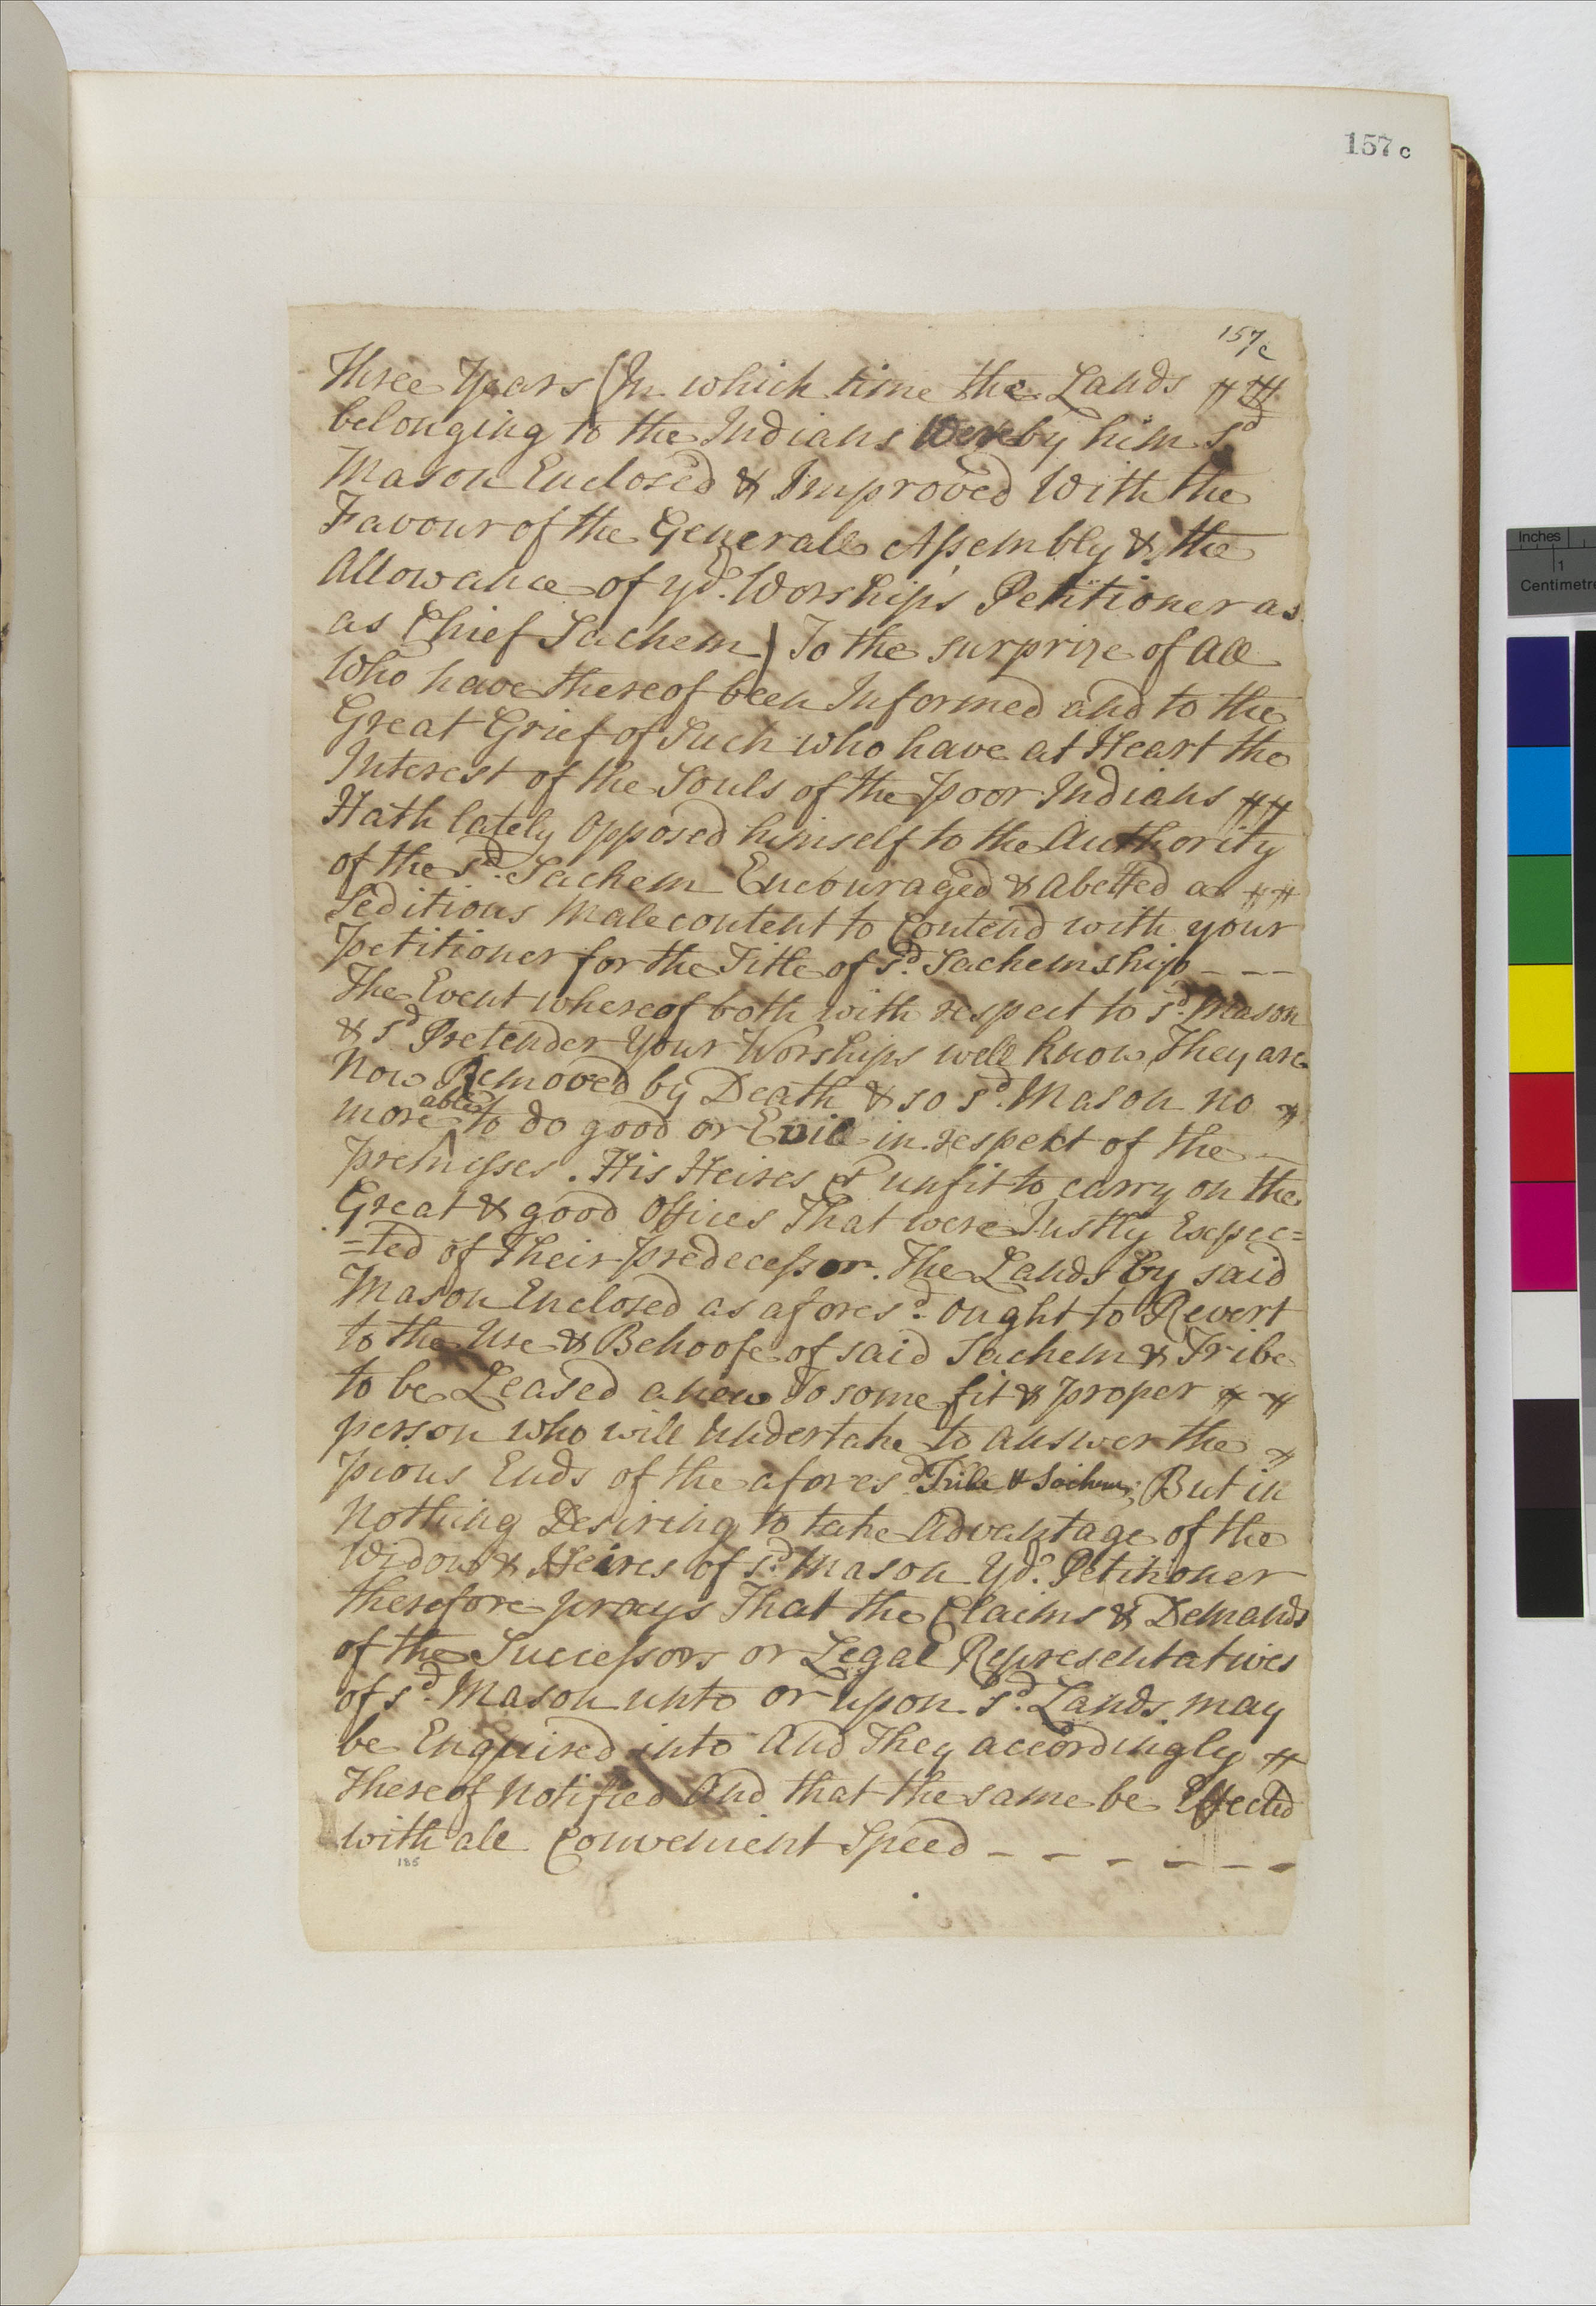 157 c
157/c
Three Years (In which time the Lands
belonging to the Indians Were by him sd
Mason Enclosed & Improved With the
Favour of the Generall Assembly & the
Allowance of yr. Worships Petitioner as
as Chief Sachem) To the surprize of all
Who have thereof been Informed and to the
Great Grief of Such who have at Heart the
Interest of the Souls of the Poor Indians
Hath lately Opposed himself to the Authority
of the sd. Sachem Encouraged & abetted a
Seditious Malecontent to Contend with your
Petitioner for the Title of sd. Sachemship - - -
The Event whereof both with respect to sd. Mason
& sd Pretender Your Worships well know, They are
Now Removed by Death & so sd. Mason no
more able to do good or Evil in respect of the
premisses. His Heires & unfit to carry on the
Great & good Offices That were Justly Expec=
=ted of Their Predecessor. The Lands By said
Mason Enclosed as aforesd. ought to Revert
to the Use & Behoofe of said Sachem & Tribe
to be Leased anew To some fit & proper
person who will undertake to answer the
Pious Ends of the aforesd. Tribe & Sachem; But in
Nothing Desiring to take Advantage of the
Widow & Heires of sd. Mason Yr. Petitioner
therefore prays That the Claims & Demands
of the Successors or Legal Representatives
of sd. Mason unto or upon sd. Lands may
be Enquired into And They accordingly
Thereof Notified And that the same be Effected
with all Convenient Speed - - - - - -
185
Inches
1
Centimetre